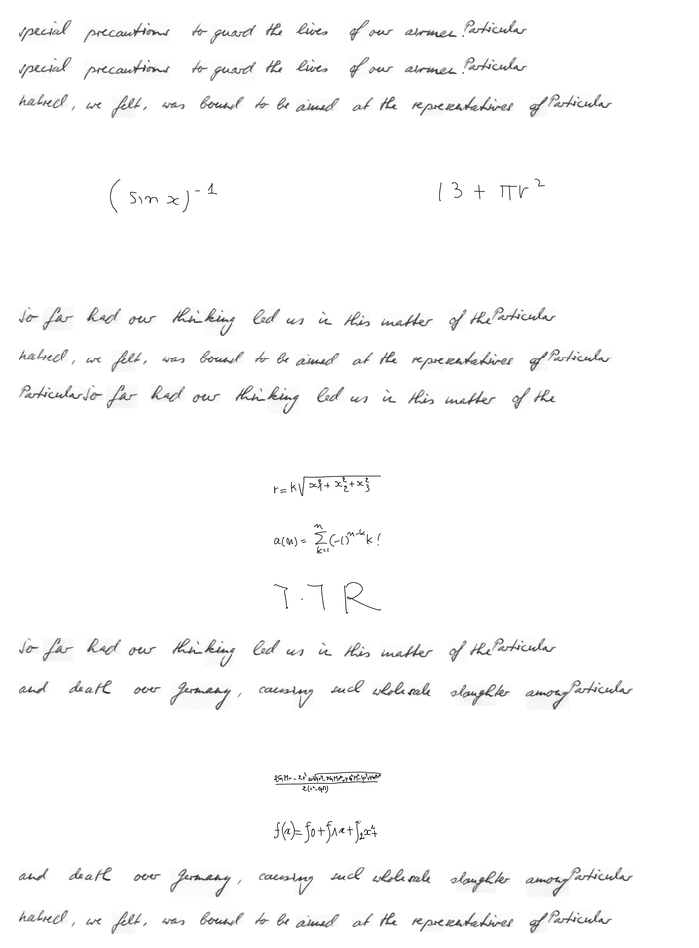 special precautions to guard the lives of our airmen. Particular
special precautions to guard the lives of our airmen. Particular
hatred, we felt, was bound to be aimed at the representatives of Particular
(sin x)^{-1} 13 + πr^2
So far had our thinking led us in this matter of the Particular
hatred, we felt, was bound to be aimed at the representatives of Particular
Particular So far had our thinking led us in this matter of the
r = k√(x_1^2 + x_2^2 + x_3^2)
a(n) = ∑_{k=1}^{n} (-1)^{n-k} k!
7.7 R
So far had our thinking led us in this matter of the Particular
and death over Germany, causing such wholesale slaughter among Particular
f(x) = f_0 + f_1 x + f_2 x^2
and death over Germany, causing such wholesale slaughter among Particular
hatred, we felt, was bound to be aimed at the representatives of Particular